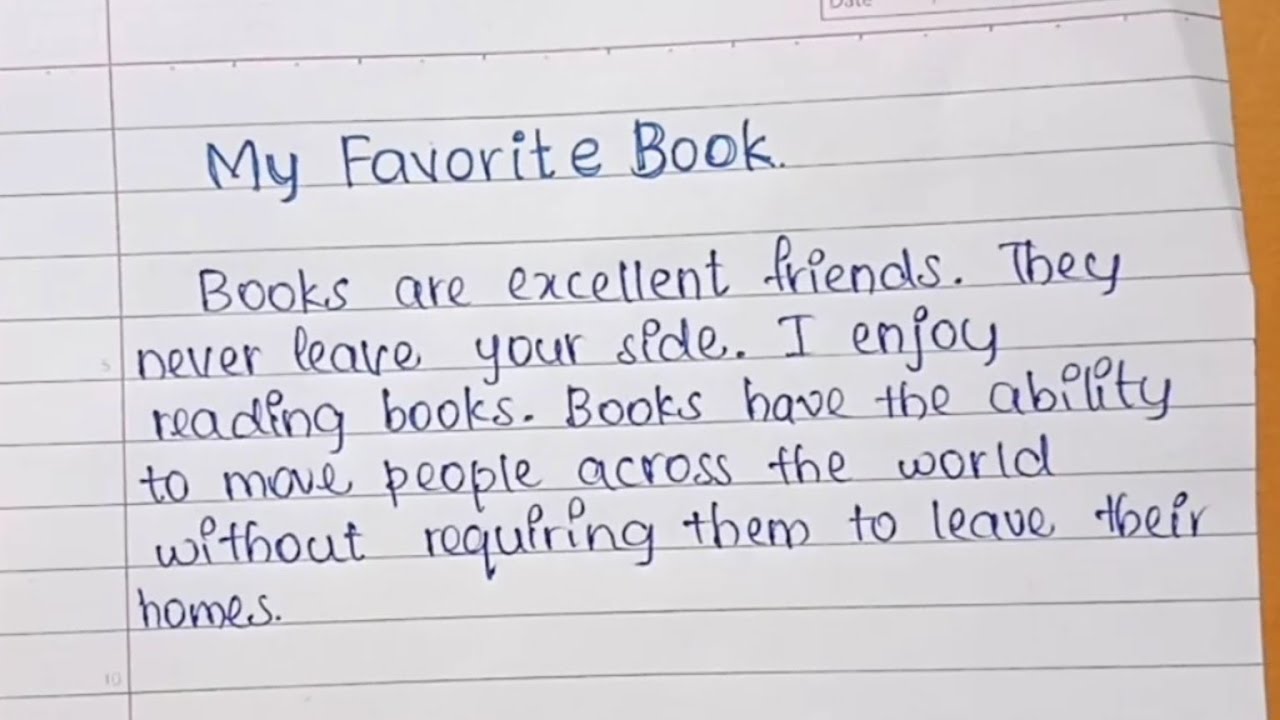 Date
My Favorite Book.
Books are excellent friends. They
never leave your side. I enjoy
5
reading books. Books have the ability
to move people across the world
without requiring them to leave their
homes.
10